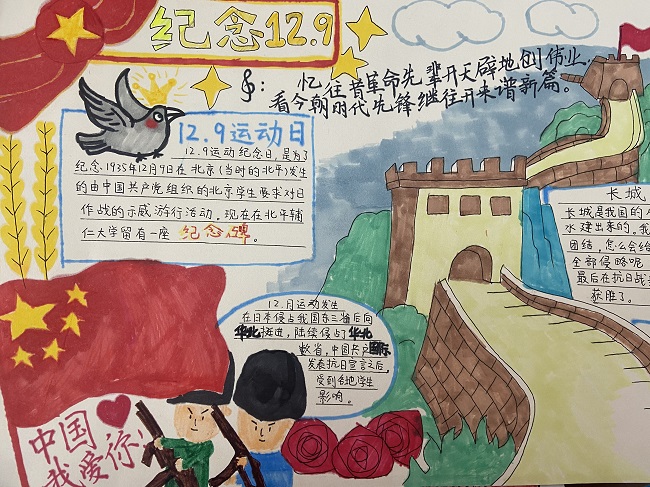 纪念12.9
忆往昔革命先辈开天辟地创伟业
看今朝时代先锋继往开来谱新篇。
12.9运动日
12.9运动纪念日,是为了
纪念1935年12月9日在北京(当时的北平)发生
的由中国共产党组织的北京学生要求对日
作战的示威游行活动。现在在北平辅
仁大学留有一座 纪念碑。
12.月运动发生
在日本侵占我国东三省后向
华北挺进,陆续侵占了华北
数省,中国共产国际
发表抗日宣言之后
受到各地学生
影响。
长城
长城是我国的
水建出来的。我
团结,怎么会给
全部侵略呢
最后在抗日战
获胜了。
中国
我爱你!